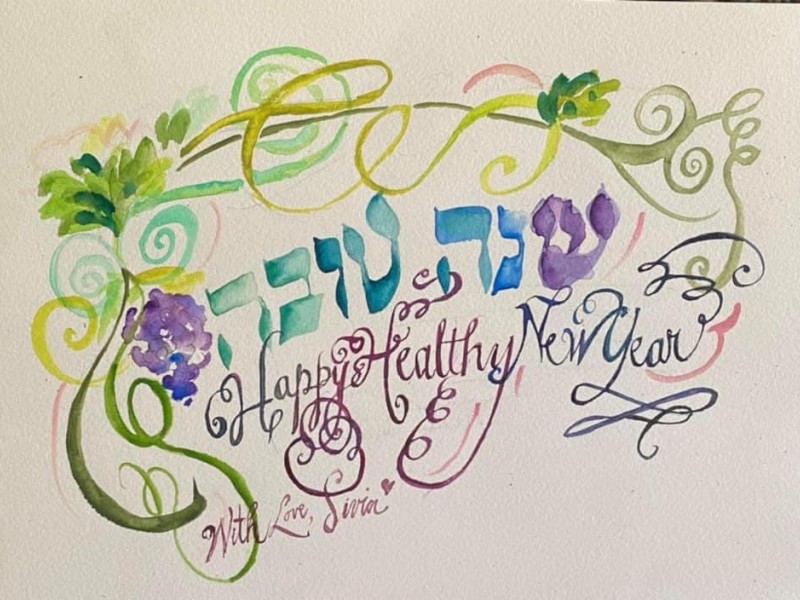 שנה טובה
Happy Healthy New Year
With Love, Sivia